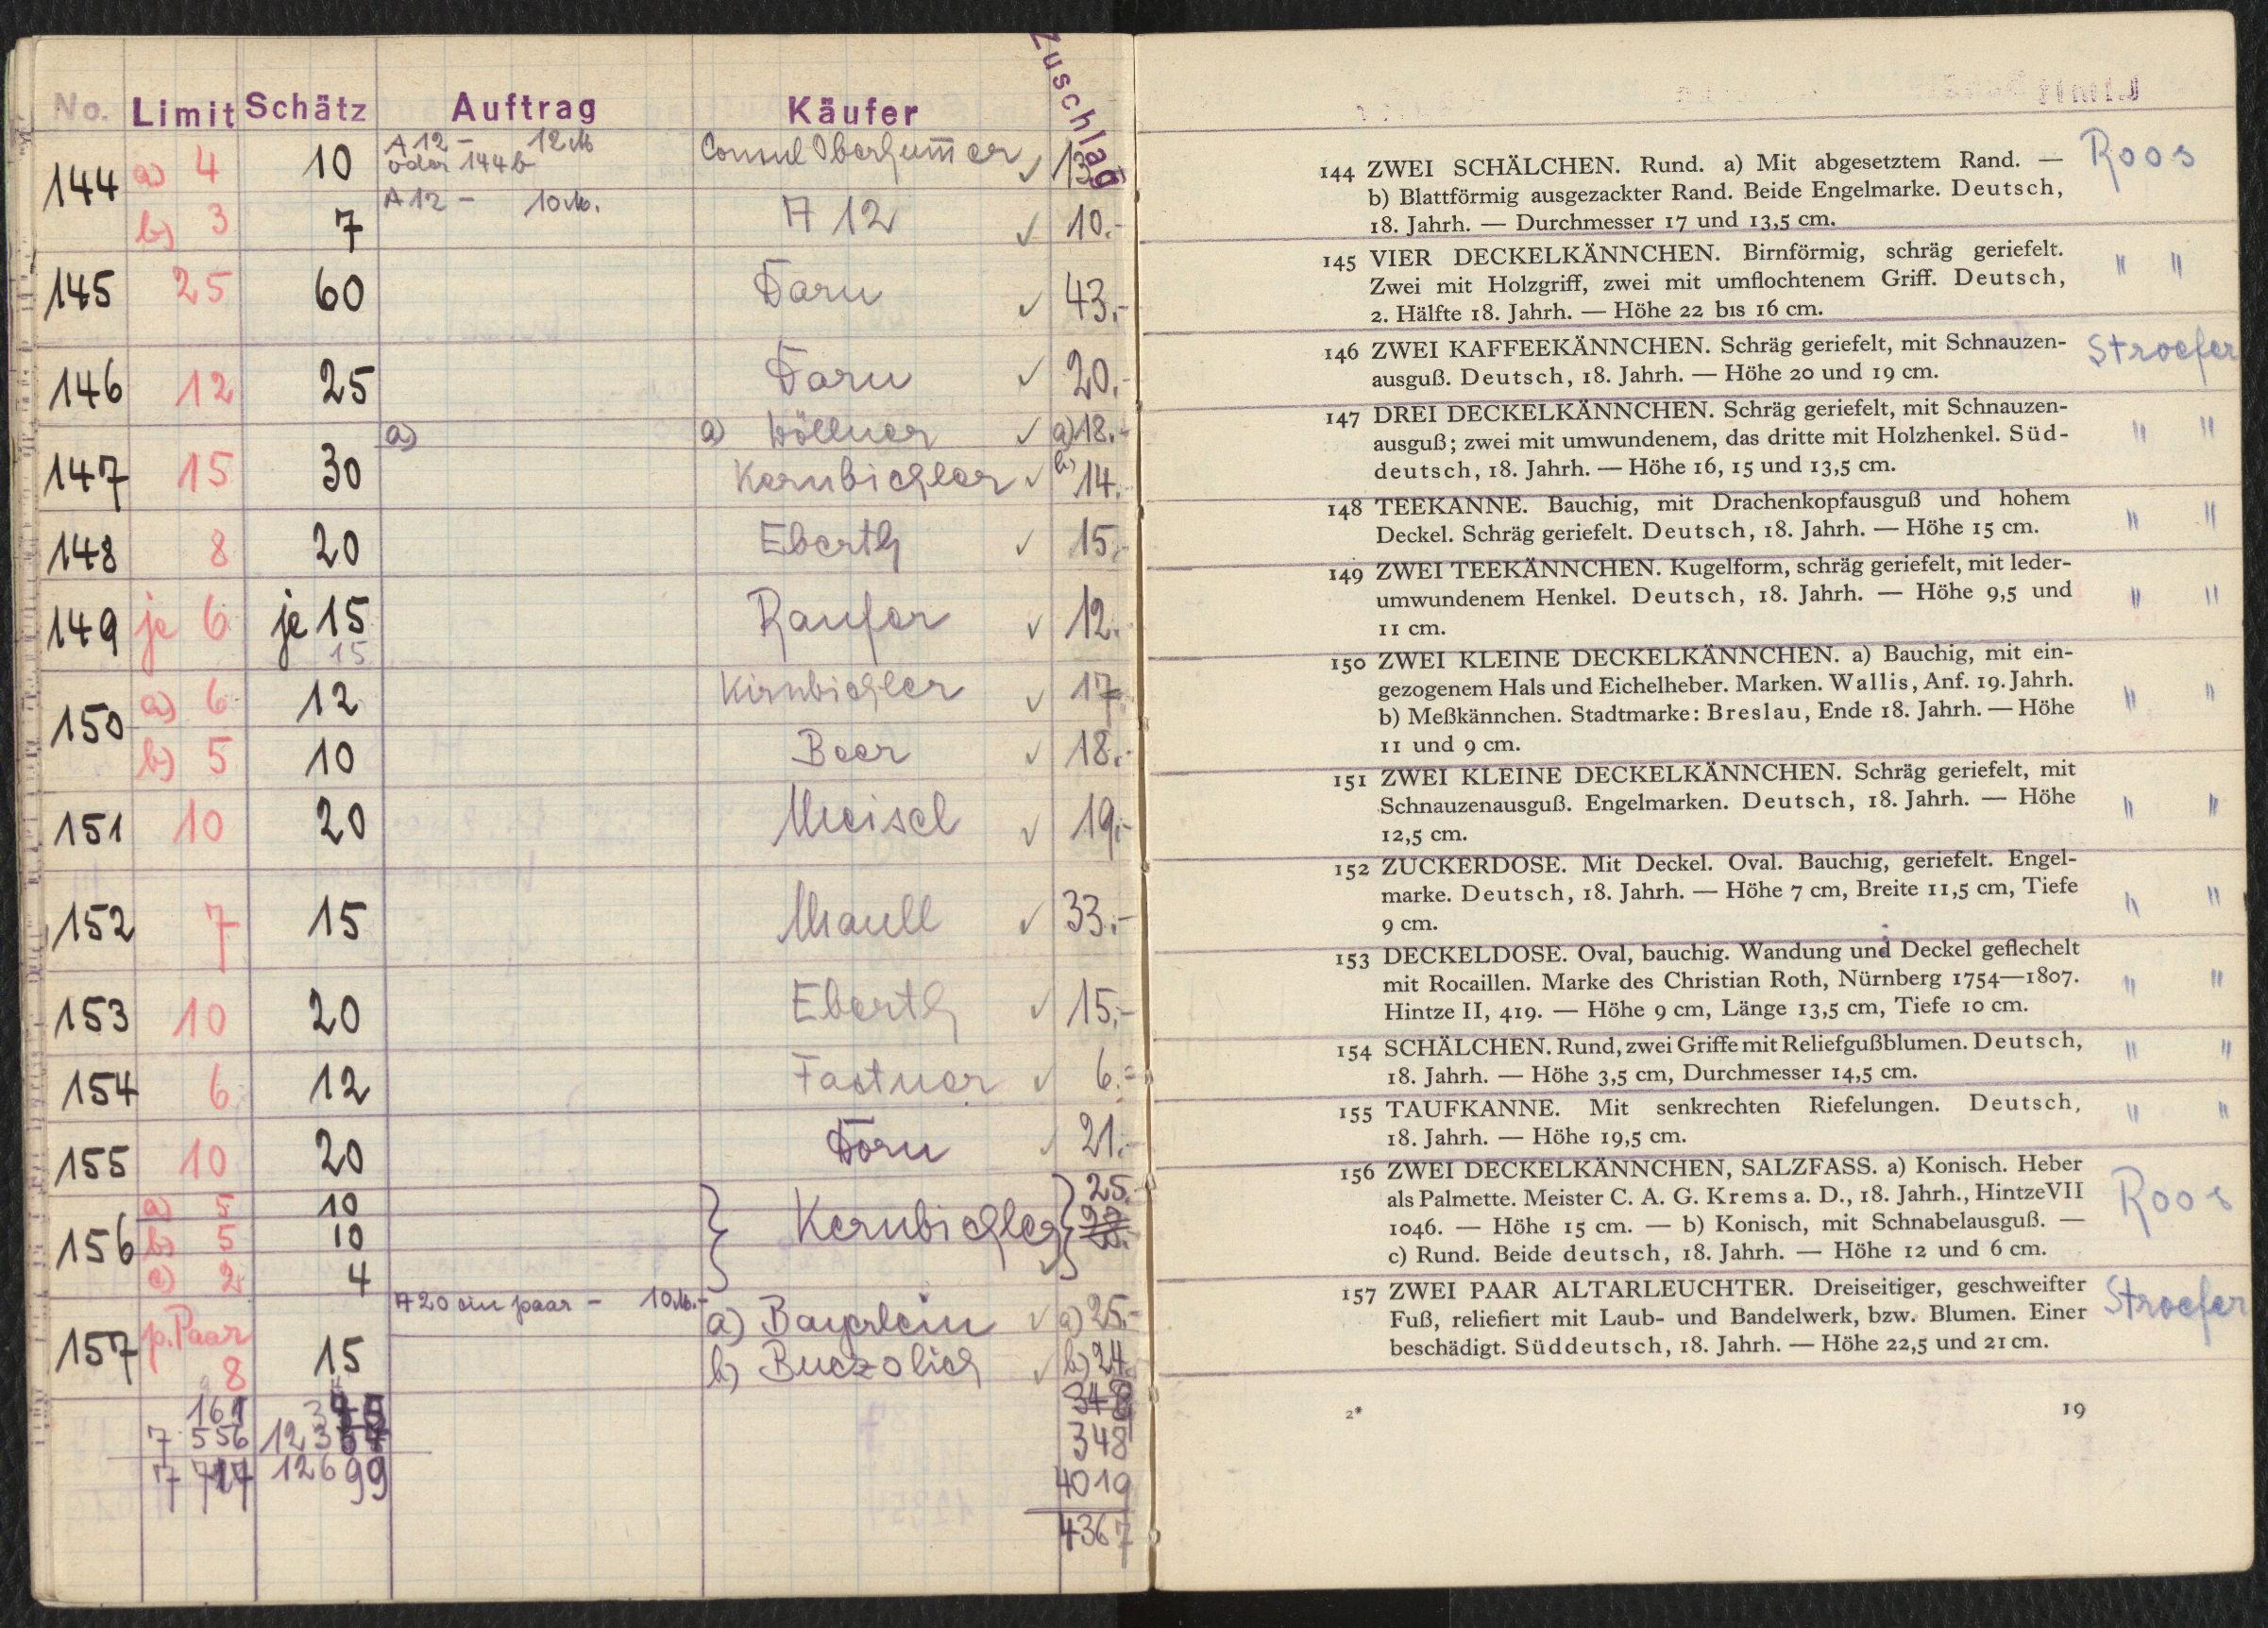 No. Limit Schätz Auftrag Käufer Zuschlag
144 a) 4 10 A 12 - 12 M Consul Oberhummer ✓ 13.-
oder 144 b
b) 3 7 A 12 - 10 M. A 12 ✓ 10.-
145 25 60 Daru ✓ 43.-
146 12 25 Daru ✓ 20.-
147 15 30 a) a) Wöllner ✓ a) 18.-
Kernbichler ✓ b) 14.-
148 8 20 Eberth ✓ 15.-
149 je 6 je 15 Raufer ✓ 12.-
15
150 a) 6 12 Kirnbichler ✓ 17.-
b) 5 10 Beer ✓ 18.-
151 10 20 Meisel ✓ 19.-
152 7 15 Maull ✓ 33.-
153 10 20 Eberth ✓ 15.-
154 6 12 Fastner ✓ 6.-
155 10 20 Doru ✓ 21.-
156 a) 5 10 Kernbichler 25.-
b) 5 10
c) 2 4 ✓
157 p. Paar 8 15 A 20 ein paar - 10 M.- a) Bayerlein ✓ a) 25.-
b) Buczolich ✓ b) 24.-
348
4019
4367
12699
144 ZWEI SCHÄLCHEN. Rund. a) Mit abgesetztem Rand. — Roos
b) Blattförmig ausgezackter Rand. Beide Engelmarke. Deutsch,
18. Jahrh. — Durchmesser 17 und 13,5 cm.
145 VIER DECKELKÄNNCHEN. Birnförmig, schräg geriefelt. " "
Zwei mit Holzgriff, zwei mit umflochtenem Griff. Deutsch,
2. Hälfte 18. Jahrh. — Höhe 22 bis 16 cm.
146 ZWEI KAFFEEKÄNNCHEN. Schräg geriefelt, mit Schnauzen- Stroefer
ausguß. Deutsch, 18. Jahrh. — Höhe 20 und 19 cm.
147 DREI DECKELKÄNNCHEN. Schräg geriefelt, mit Schnauzen-
ausguß; zwei mit umwundenem, das dritte mit Holzhenkel. Süd- " "
deutsch, 18. Jahrh. — Höhe 16, 15 und 13,5 cm.
148 TEEKANNE. Bauchig, mit Drachenkopfausguß und hohem " "
Deckel. Schräg geriefelt. Deutsch, 18. Jahrh. — Höhe 15 cm.
149 ZWEI TEEKÄNNCHEN. Kugelform, schräg geriefelt, mit leder-
umwundenem Henkel. Deutsch, 18. Jahrh. — Höhe 9,5 und " "
11 cm.
150 ZWEI KLEINE DECKELKÄNNCHEN. a) Bauchig, mit ein-
gezogenem Hals und Eichelheber. Marken. Wallis, Anf. 19. Jahrh. " "
b) Meßkännchen. Stadtmarke: Breslau, Ende 18. Jahrh. — Höhe
11 und 9 cm.
151 ZWEI KLEINE DECKELKÄNNCHEN. Schräg geriefelt, mit
Schnauzenausguß. Engelmarken. Deutsch, 18. Jahrh. — Höhe " "
12,5 cm.
152 ZUCKERDOSE. Mit Deckel. Oval. Bauchig, geriefelt. Engel-
marke. Deutsch, 18. Jahrh. — Höhe 7 cm, Breite 11,5 cm, Tiefe " "
9 cm.
153 DECKELDOSE. Oval, bauchig. Wandung und Deckel geflechelt
mit Rocaillen. Marke des Christian Roth, Nürnberg 1754—1807. " "
Hintze II, 419. — Höhe 9 cm, Länge 13,5 cm, Tiefe 10 cm.
154 SCHÄLCHEN. Rund, zwei Griffe mit Reliefgußblumen. Deutsch, " "
18. Jahrh. — Höhe 3,5 cm, Durchmesser 14,5 cm.
155 TAUFKANNE. Mit senkrechten Riefelungen. Deutsch, " "
18. Jahrh. — Höhe 19,5 cm.
156 ZWEI DECKELKÄNNCHEN, SALZFASS. a) Konisch. Heber
als Palmette. Meister C. A. G. Krems a. D., 18. Jahrh., Hintze VII Roos
1046. — Höhe 15 cm. — b) Konisch, mit Schnabelausguß. —
c) Rund. Beide deutsch, 18. Jahrh. — Höhe 12 und 6 cm.
157 ZWEI PAAR ALTARLEUCHTER. Dreiseitiger, geschweifter Stroefer
Fuß, reliefiert mit Laub- und Bandelwerk, bzw. Blumen. Einer
beschädigt. Süddeutsch, 18. Jahrh. — Höhe 22,5 und 21 cm.
2* 19